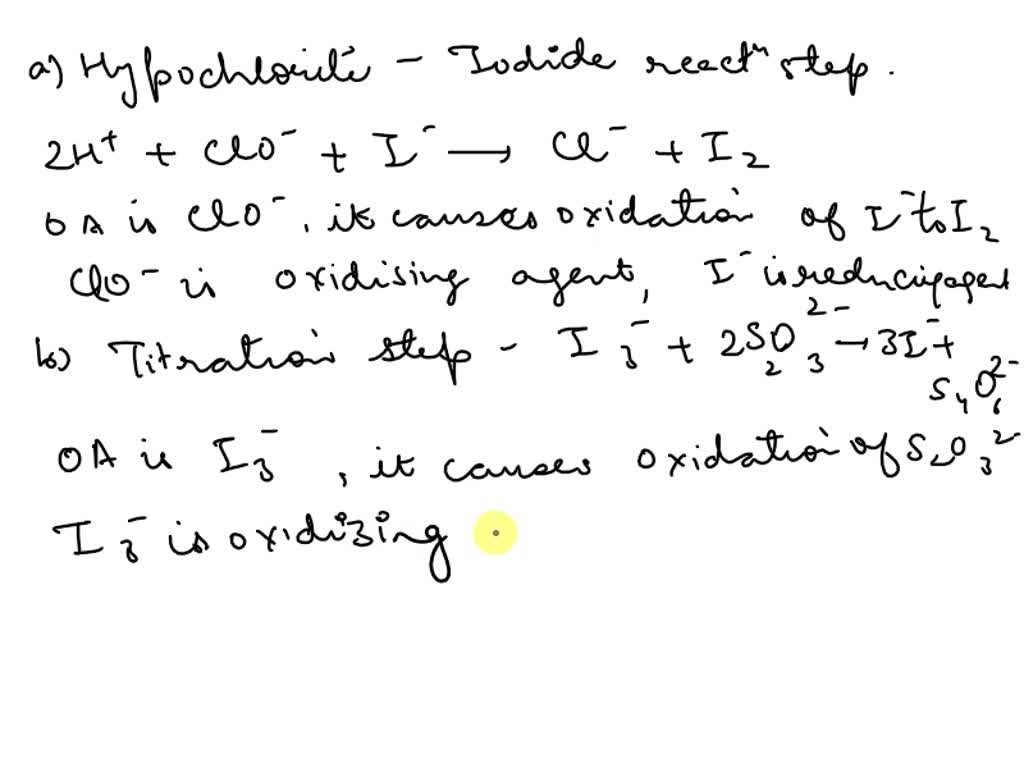 a) Hypochlorite - Iodide reactⁿ step.
2H⁺ + ClO⁻ + I⁻ → Cl⁻ + I₂
OA is ClO⁻, it causes oxidation of I⁻ to I₂
ClO⁻ is oxidising agent, I⁻ is reducing agent
b) Titration step - I₃⁻ + 2S₂O₃²⁻ → 3I⁻ +
S₄O₆²⁻
OA is I₃⁻, it causes oxidation of S₂O₃²⁻
I₃⁻ is oxidizing